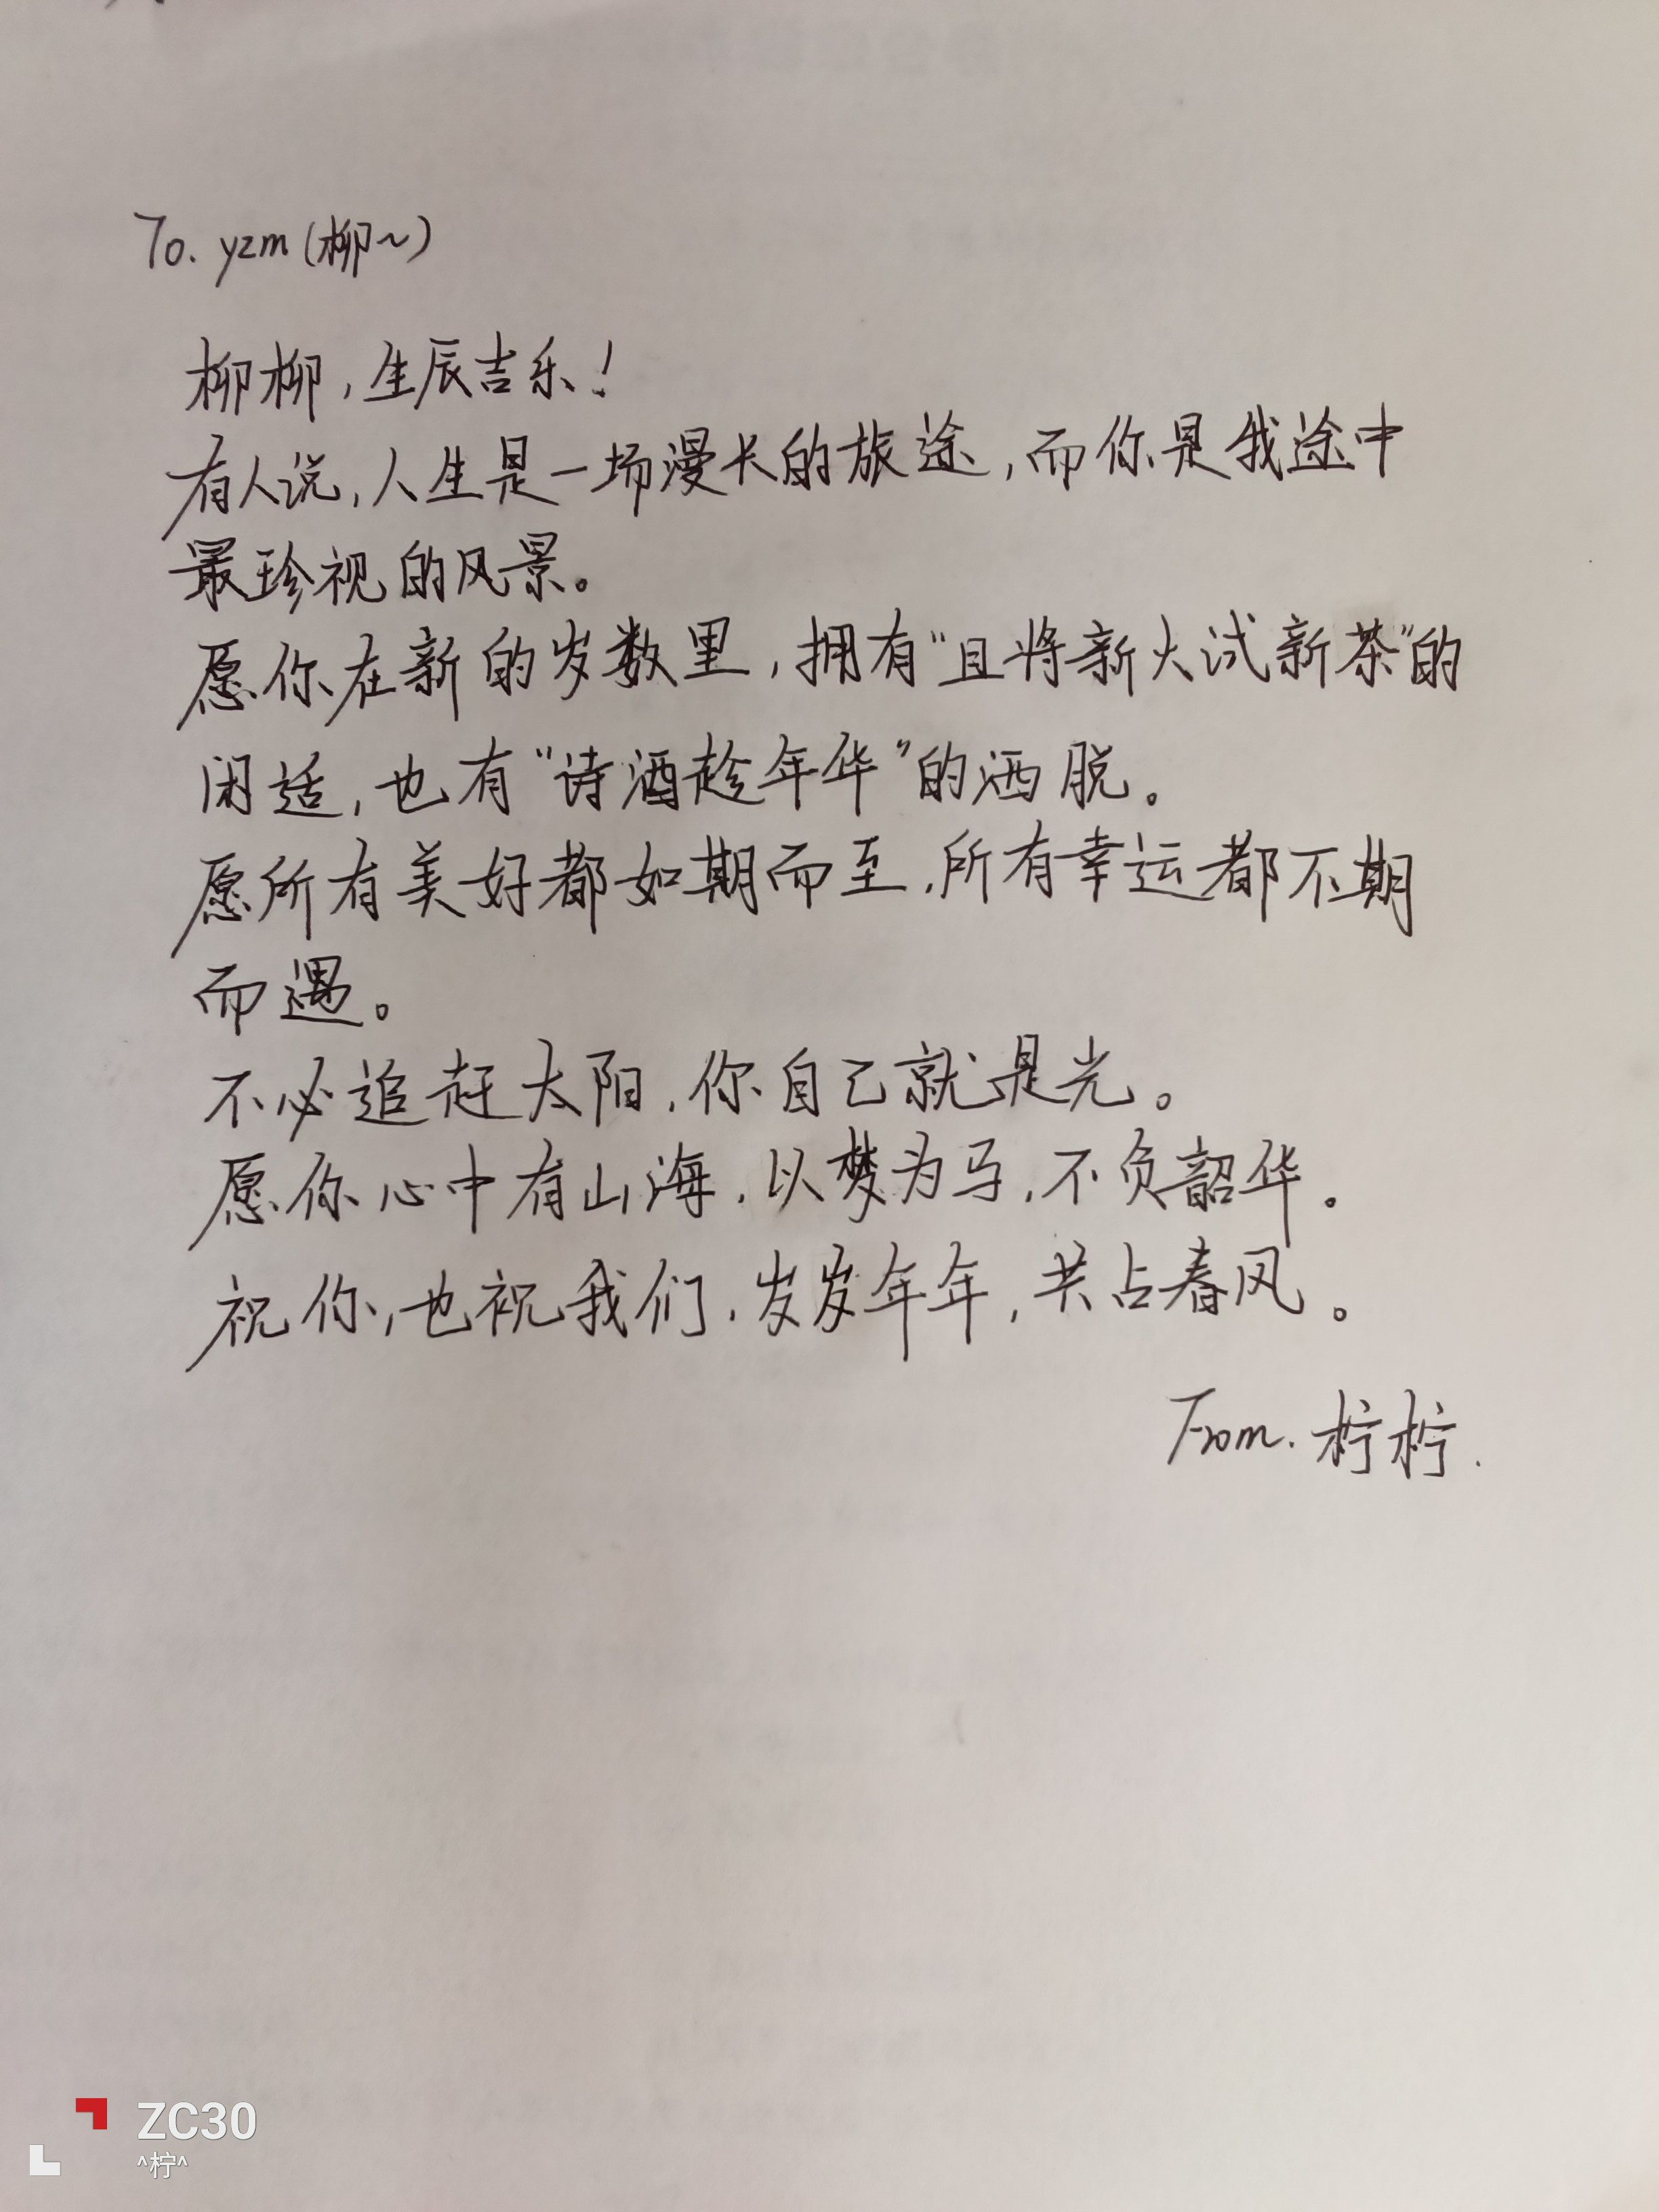 To. yzm (柳~)
柳柳,生辰吉乐!
有人说,人生是一场漫长的旅途,而你是我途中
最珍视的风景。
愿你在新的岁数里,拥有"且将新火试新茶"的
闲适,也有"诗酒趁年华"的洒脱。
愿所有美好都如期而至,所有幸运都不期
而遇。
不必追赶太阳,你自己就是光。
愿你心中有山海,以梦为马,不负韶华。
祝你,也祝我们,岁岁年年,共占春风。
From. 柠柠.
ZC30
^柠^